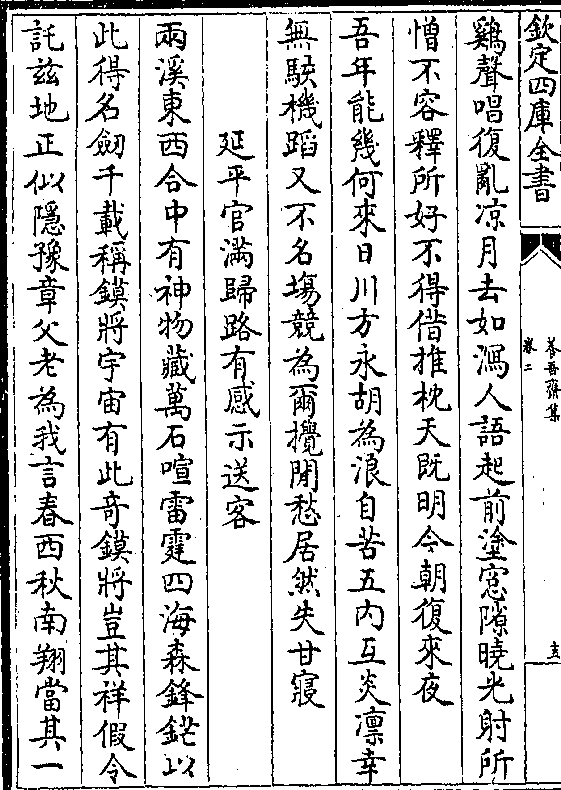 欽定四庫全書
養吾齋集
卷二
鷄聲唱復亂凉月去如瀉人語起前塗窓隙曉光射所
憎不容釋所好不得借推枕天既明今朝復來夜
吾年能幾何來日川方永胡為浪自苦五内互炎凜幸
無駭機蹈又不名塲競為爾攪閒愁居然失甘寢
延平官滿歸路有感示送客
兩溪東西合中有神物藏萬石喧雷霆四海森鋒鋩以
此得名劒千載稱鏌將宇宙有此奇鏌將豈其祥假令
託兹地正似隱豫章父老為我言春西秋南翔當其一